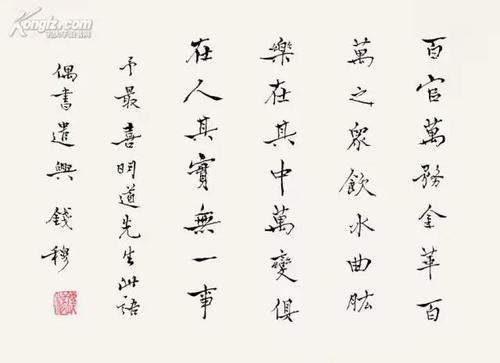 百官萬務金革百
萬之眾飲水曲肱
樂在其中萬變俱
在人其實無一事
予最喜明道先生此語
偶書遣興 錢穆
Kongfz.com